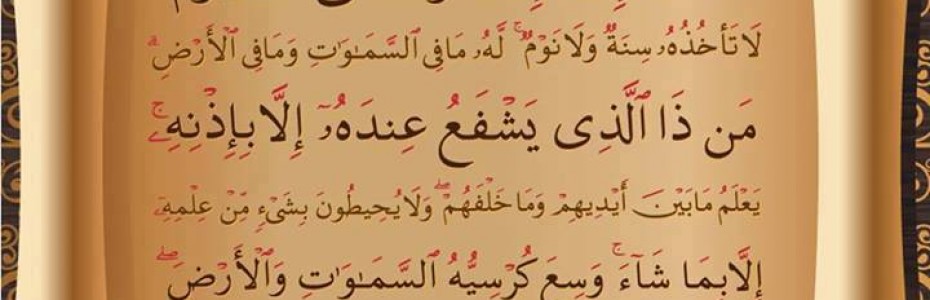 لَا تَأْخُذُهُۥ سِنَةٌ وَلَا نَوْمٌ ۚ لَّهُۥ مَا فِى ٱلسَّمَـٰوَٰتِ وَمَا فِى ٱلْأَرْضِ ۗ
مَن ذَا ٱلَّذِى يَشْفَعُ عِندَهُۥٓ إِلَّا بِإِذْنِهِۦ ۚ
يَعْلَمُ مَا بَيْنَ أَيْدِيهِمْ وَمَا خَلْفَهُمْ ۖ وَلَا يُحِيطُونَ بِشَىْءٍ مِّنْ عِلْمِهِۦٓ
إِلَّا بِمَا شَآءَ ۚ وَسِعَ كُرْسِيُّهُ ٱلسَّمَـٰوَٰتِ وَٱلْأَرْضَ ۖ